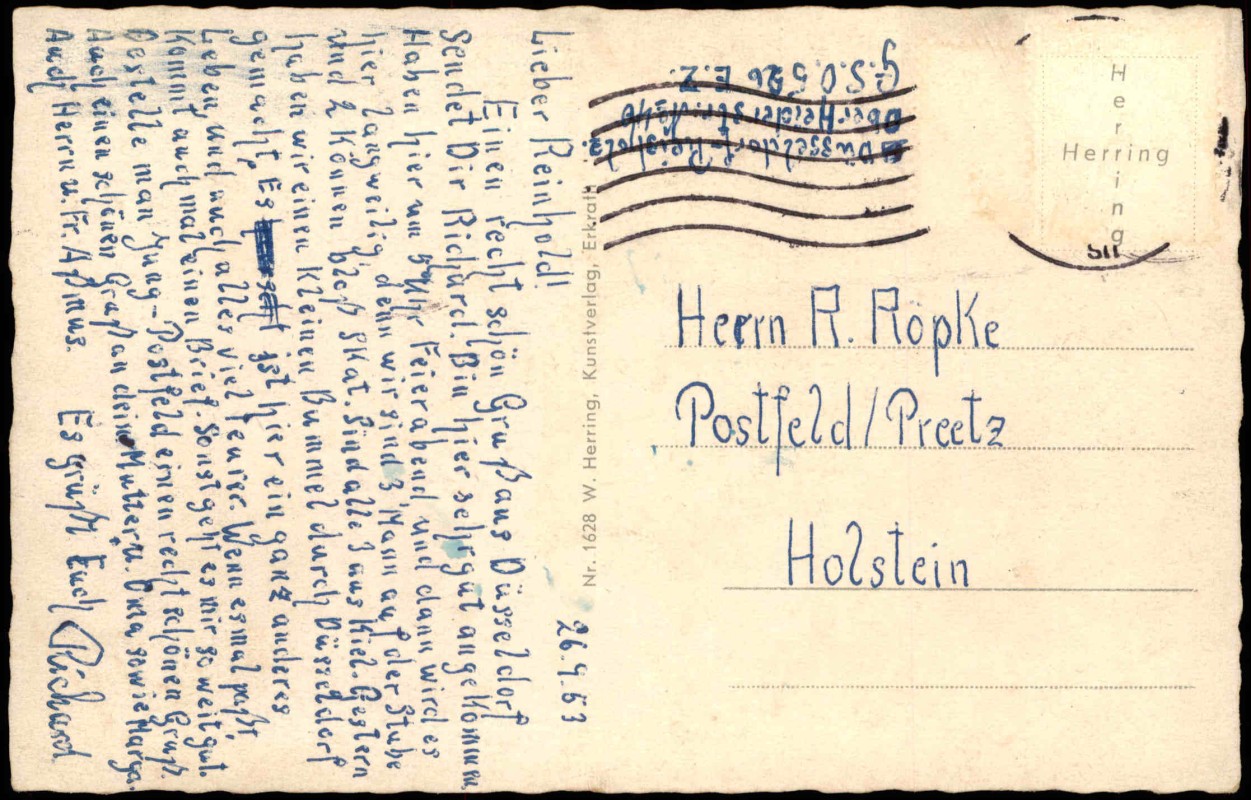 26.9.53
Lieber Reinhold!
Einen recht schön Gruß aus Düsseldorf
sendet Dir Richard. Bin hier sehr gut angekommen,
Haben hier um 5 Uhr Feierabend und dann wird es
hier langweilig, denn wir sind 3 Mann auf der Stube
und 2 können bloß Skat. Sind alle 3 aus Kiel. Gestern
haben wir einen kleinen Bummel durch Düsseldorf
gemacht, Es ist hier ein ganz anderes
Leben, und auch alles viel teurer. Wenn es mal paßt,
kommt auch mal einen Brief. Sonst geht es mir so weit gut.
Bestelle man Jung-Postfeld einen recht schönen Gruß.
Auch einen schönen Gruß an deine Mutter u. Oma sowie Marga.
Auch Herrn u. Fr. Aßmus. Es grüßt Euch Richard
Nr. 1628 W. Herring, Kunstverlag, Erkrath
Düsseldorf-Reisholz.
Oberheider str.
G.S.O. 526 E.Z.
Herring
Herring
Herrn R. Röpke
Postfeld/Preetz
Holstein